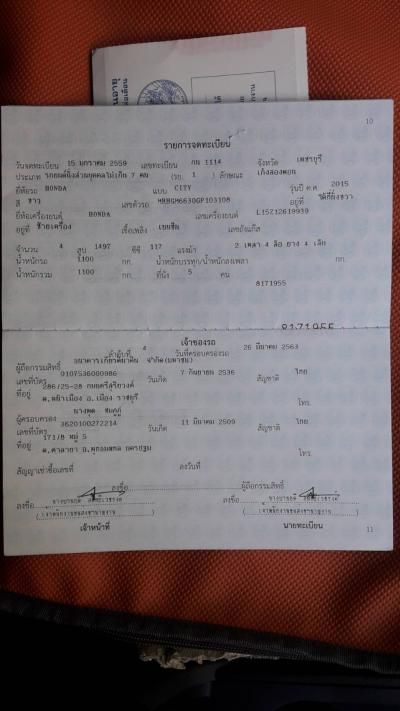 10
รายการจดทะเบียน
วันจดทะเบียน 15 มกราคม 2559 เลขทะเบียน กน 1114 จังหวัด เพชรบุรี
ประเภท รถยนต์นั่งส่วนบุคคลไม่เกิน 7 คน (รย. 1 ) ลักษณะ เก๋งสองตอน
ยี่ห้อรถ HONDA แบบ CITY รุ่นปี ค.ศ. 2015
สี ขาว เลขตัวรถ MRHGM6630GP103108 อยู่ที่
ยี่ห้อเครื่องยนต์ HONDA เลขเครื่องยนต์ L15Z12619939
อยู่ที่ ซ้ายเครื่อง เชื้อเพลิง เบนซิน เลขถังแก๊ส
จำนวน 4 สูบ 1497 ซีซี 117 แรงม้า 2 เพลา 4 ล้อ ยาง 4 เส้น
น้ำหนักรถ 1100 กก. น้ำหนักบรรทุก/น้ำหนักลงเพลา กก.
น้ำหนักรวม 1100 กก. ที่นั่ง 5 คน
8171955
เจ้าของรถ
ลำดับที่ 4 วันที่ครอบครองรถ 26 มีนาคม 2563
ผู้ถือกรรมสิทธิ์ ธนาคารเกียรตินาคิน จำกัด(มหาชน)
เลขที่บัตร 0107536000986 วันเกิด 7 กันยายน 2536 สัญชาติ ไทย
ที่อยู่ 286/25-28 ถนนศรีสุริยวงศ์
ต.หน้าเมือง อ.เมือง ราชบุรี โทร.
ผู้ครอบครอง
เลขที่บัตร 3620100272214 วันเกิด 11 มีนาคม 2509 สัญชาติ ไทย
ที่อยู่ 171/8 หมู่ 5
ต.ศาลายา อ.พุทธมณฑล นครปฐม โทร.
สัญญาเช่าซื้อเลขที่ ลงวันที่
ลงชื่อ ผู้ถือกรรมสิทธิ์
ลงชื่อ ลงชื่อ
เจ้าหน้าที่ นายทะเบียน
11